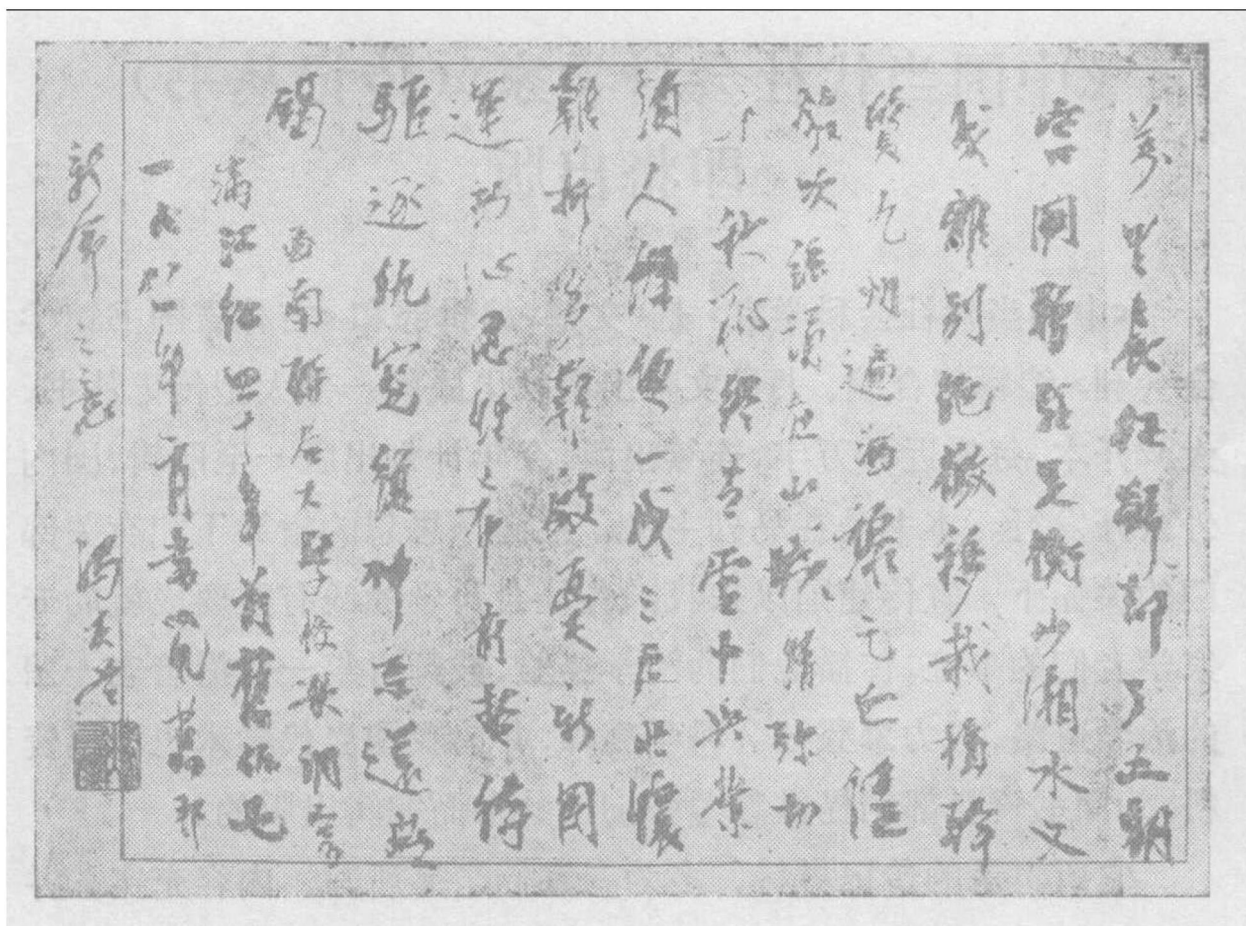 萬里長征辭却了五朝
宮闕暫駐足衡山湘水又
成離別絕徼移栽楨幹
質九州遍洒黎元血儘
笳吹絃誦在山城情彌切
千秋恥終當雪中興業
須人傑便一成三户壯懷
難折多難殷憂新國
運動心忍性希前哲待
驅逐仇寇復神京還燕
碣
西南聯合大學校歌調寄
滿江紅四十年前舊作也
一九八一年 月書
之意 馮友蘭